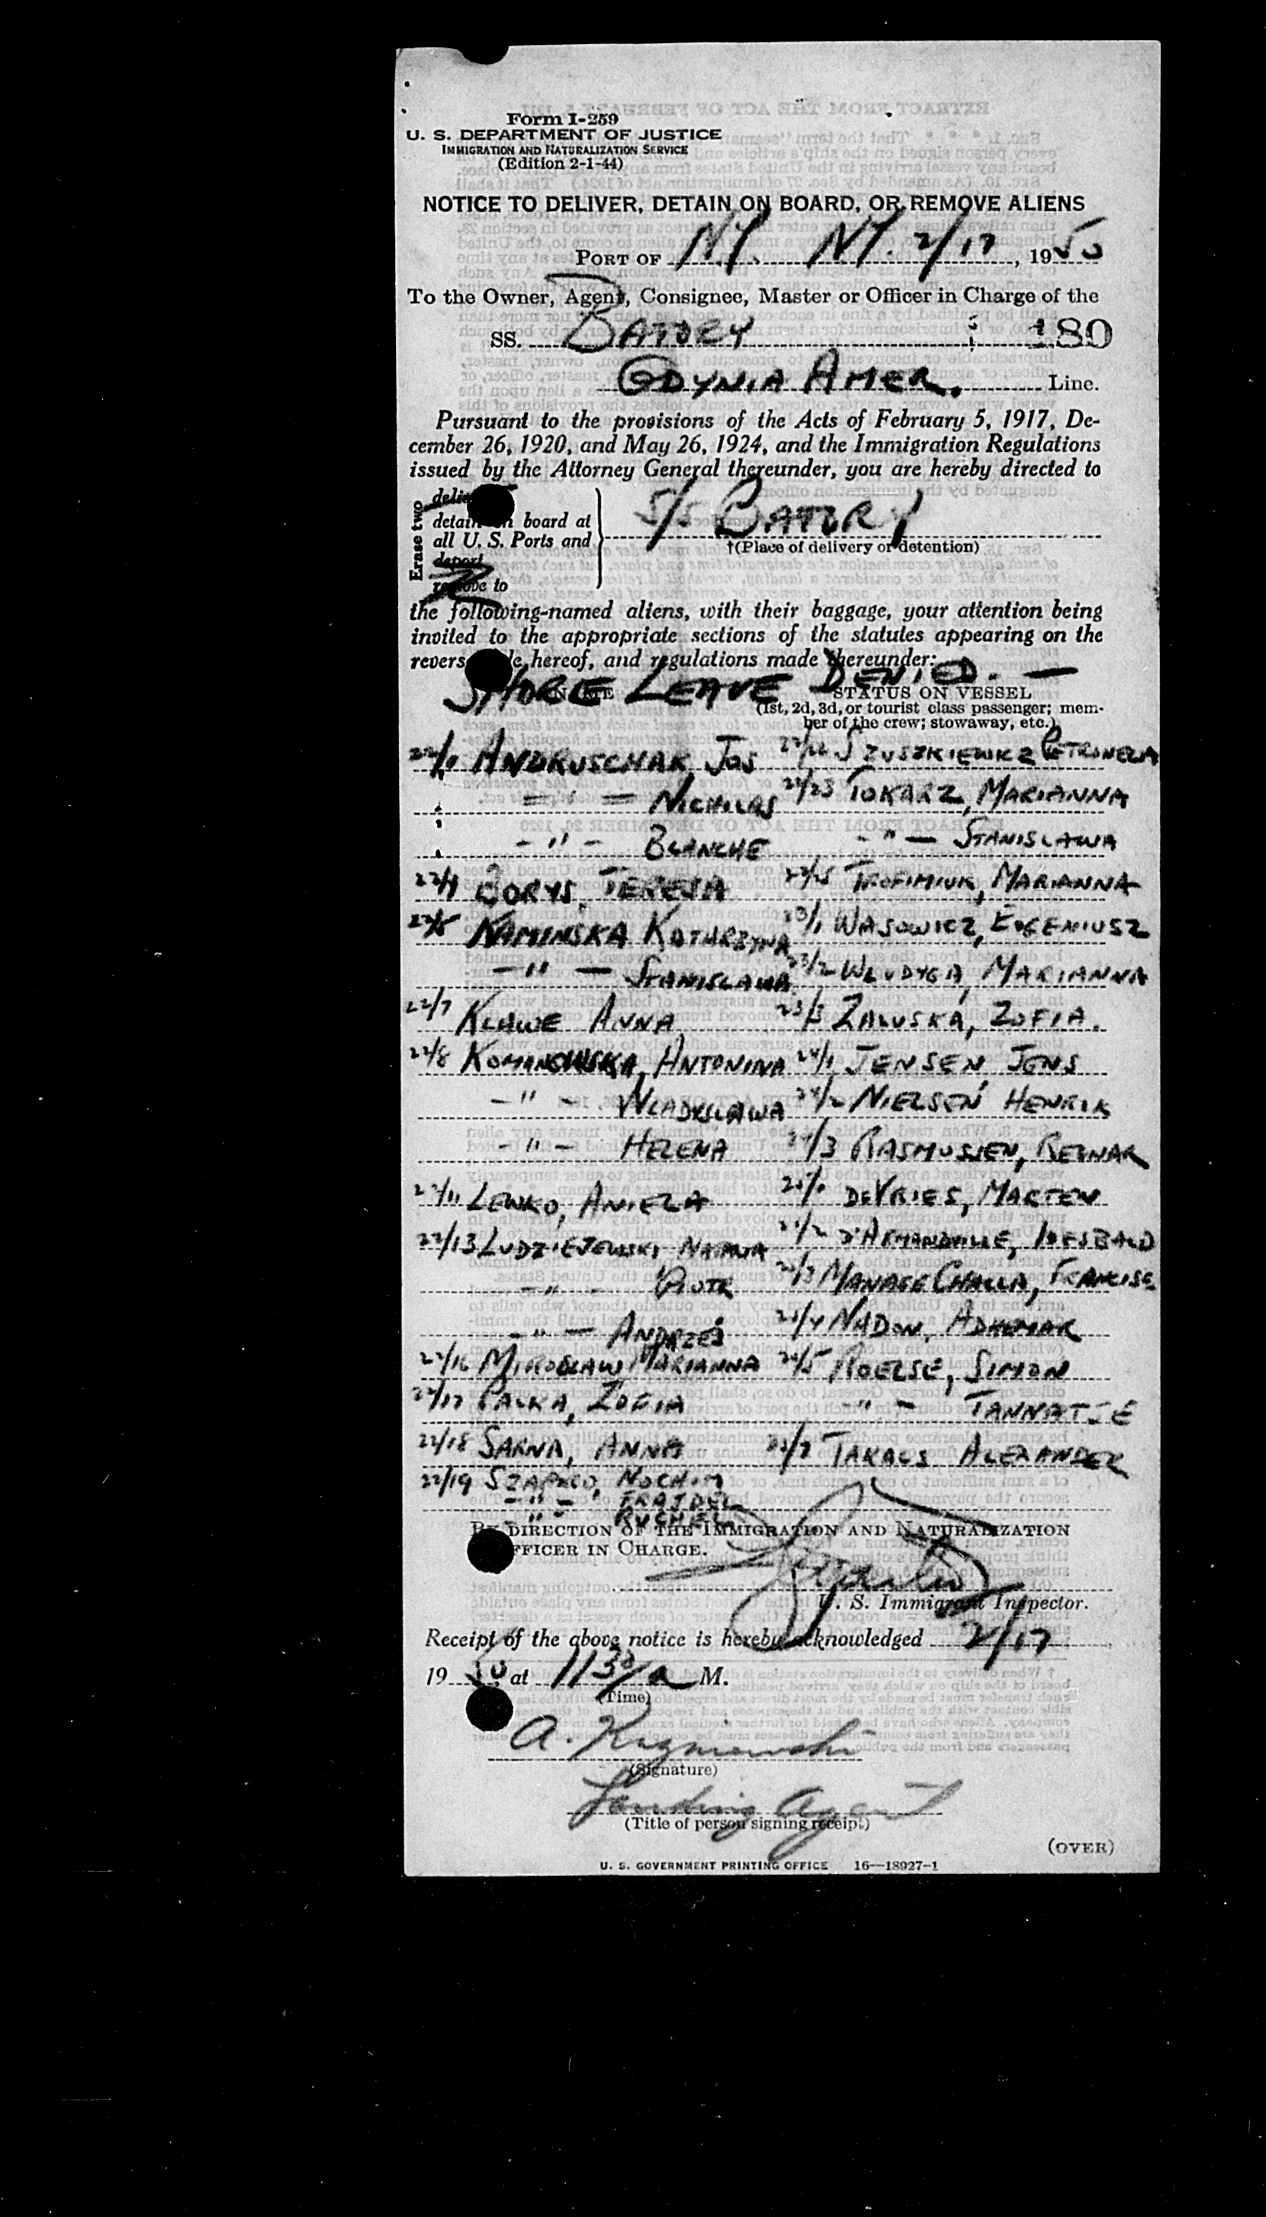 Form I-259
U. S. DEPARTMENT OF JUSTICE
IMMIGRATION AND NATURALIZATION SERVICE
(Edition 2-1-44)
NOTICE TO DELIVER, DETAIN ON BOARD, OR REMOVE ALIENS
PORT OF N.Y. N.Y. 2/17, 1950
To the Owner, Agent, Consignee, Master or Officer in Charge of the
SS. BATORY 180
GDYNIA AMER. Line.
Pursuant to the provisions of the Acts of February 5, 1917, De-
cember 26, 1920, and May 26, 1924, and the Immigration Regulations
issued by the Attorney General thereunder, you are hereby directed to
Erase two
detain on board at
all U. S. Ports and
deport
remove to
S/S BATORY
†(Place of delivery or detention)
the following-named aliens, with their baggage, your attention being
invited to the appropriate sections of the statutes appearing on the
hereof, and regulations made thereunder:
SHORE LEAVE DENIED. —
NAME STATUS ON VESSEL
(1st, 2d, 3d, or tourist class passenger; mem-
ber of the crew; stowaway, etc.)
22/1 ANDRUSCHAK, JOS 22/22 SZUSZKIEWICZ PETRONELA
— " — NICHOLAS 22/23 TOKARZ, MARIANNA
- " - BLANCHE - " — STANISLAWA
22/4 TERESA 22/25 TROFIMIUK, MARIANNA
22/5 KAMINSKA KATARZYNA 23/1 WASOWICZ, EUGENIUSZ
— " — STANISLAWA 23/2 MARIANNA
22/7 KLAWE ANNA 23/3 ZALUSKA, ZOFIA.
22/8 ANTONINA 24/1 JENSEN, JENS
- " - WLADYSLAWA 24/2 NIELSEN, HENRIK
- " - HELENA 24/3 RASMUSSEN,
22/11 LEWKO, ANIELA DEVRIES, MARTEN
22/13 D'ARMANDVILLE,
- " - PIOTR
- " — ANDRZEJ NADON, ADHEMAR
22/16 MIROSLAW MARIANNA ROELSE, SIMON
22/17 PALKA, ZOFIA - " - TANNATJE
22/18 SARNA, ANNA TAKACS ALEXANDER
22/19 NOCHIM
- " - FRAJDEL
" RUCHEL
BY DIRECTION OF THE IMMIGRATION AND NATURALIZATION
OFFICER IN CHARGE.
U. S. Immigrant Inspector.
Receipt of the above notice is hereby acknowledged 2/17
1950 at 1130/a M.
(Time)
A.
(Signature)
Landing Agent
(Title of person signing receipt)
(OVER)
U. S. GOVERNMENT PRINTING OFFICE 16—18027-1